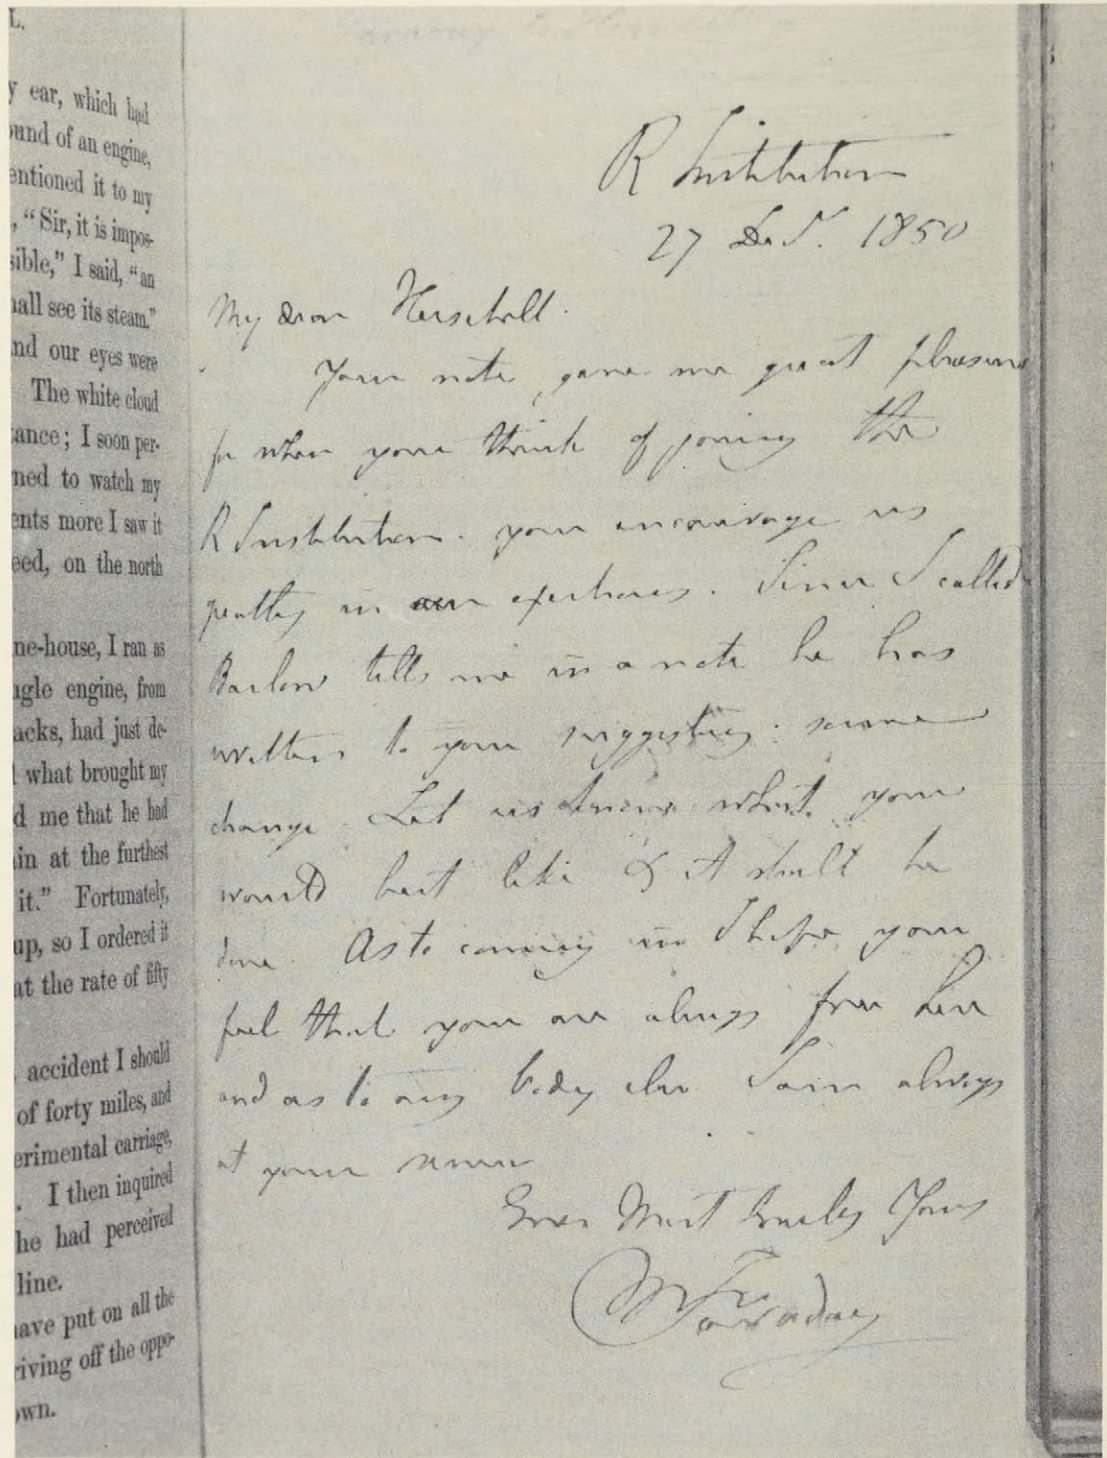 L.
y ear, which had
ound of an engine,
entioned it to my
, “Sir, it is impos-
sible,” I said, “an
hall see its steam.”
nd our eyes were
The white cloud
tance; I soon per-
ned to watch my
ents more I saw it
eed, on the north
ne-house, I ran as
ngle engine, from
acks, had just de-
l what brought my
d me that he had
in at the furthest
it.” Fortunately,
up, so I ordered it
at the rate of fifty
accident I should
of forty miles, and
erimental carriage,
. I then inquired
he had perceived
line.
have put on all the
riving off the oppo-
own.
R Institution
27 1850
My dear Herschell.
Your note gave me great pleasure
for when you think of joining the
R Institution. you encourage us
greatly in our exertions. Since I called
Barlow tells me in a note he has
written to you suggesting some
change. Let us know what you
would best like & it shall be
done. As to coming in I hope you
feel that you are always free here
and as to any body else I am always
at your service
Ever Most Truly Yours
M Faraday